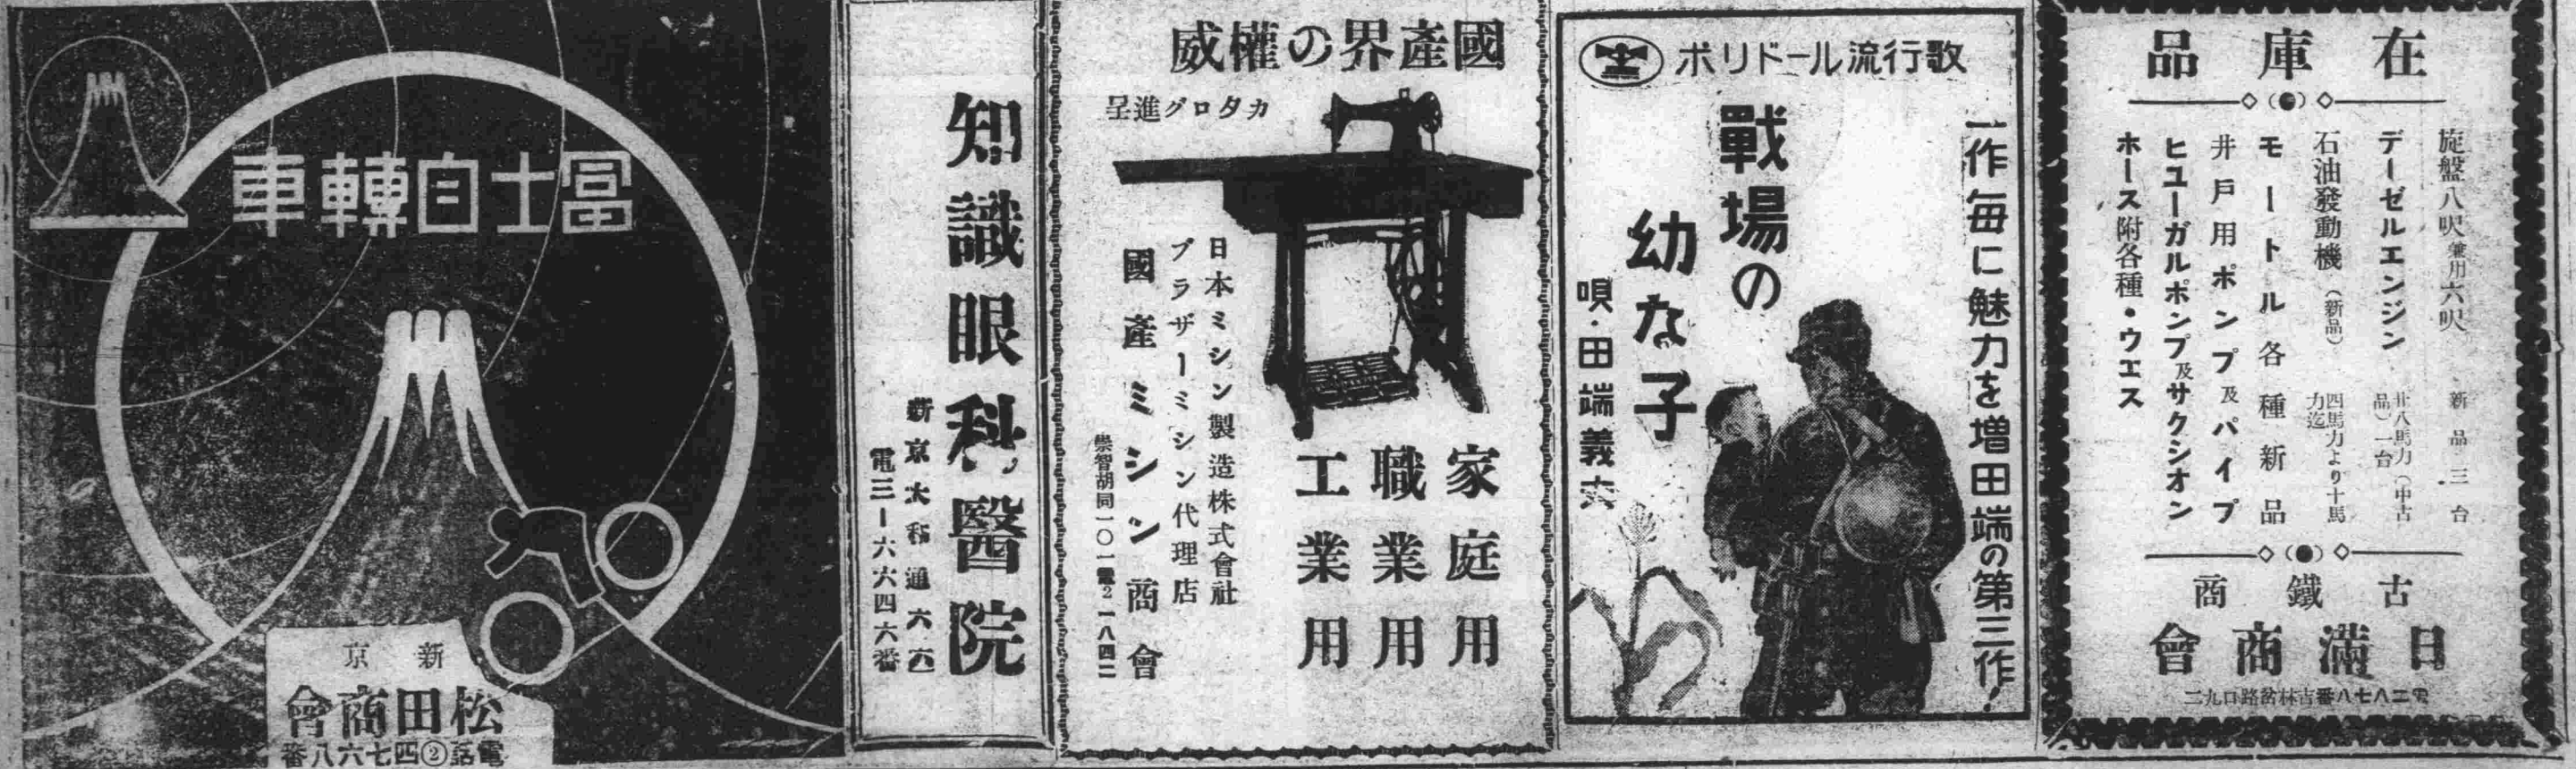 在庫品
旋盤八呎兼用六呎 新品三台
デーゼルエンジン 廿八馬力(中古品)一台
石油發動機(新品) 四馬力より十馬力迄
モートル各種新品
井戸用ポンプ及パイプ
ヒユーガルポンプ及サクシオン
ホース附各種・ウエス
古鐵商
日滿商會
電二八七八番吉林岔路口九二
ポリドール流行歌
一作每に魅力を増田端の第三作!
戰場の
幼な子
唄・田端義夫
國產界の權威
カタログ進呈
家庭用
職業用
工業用
日本ミシン製造株式會社
ブラザーミシン代理店
國產ミシン商會
崇智胡同一〇一電2一八四二
知識眼科醫院
新京大和通六六
電三一六六四六番
冨士自轉車
新京
松田商會
電話②四七六八番